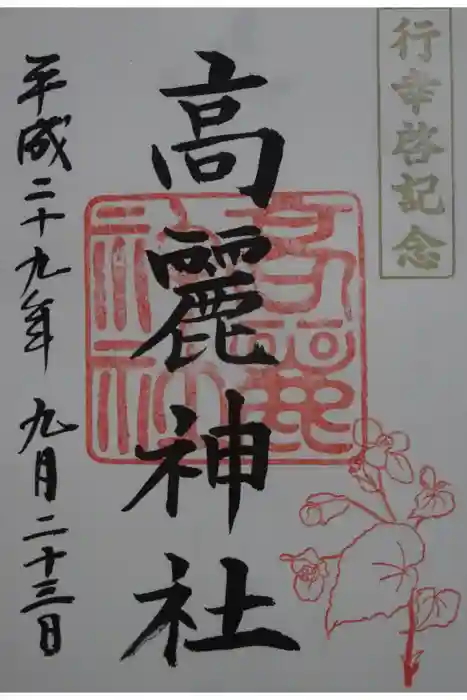 行幸啓記念
高麗神社
平成二十九年 九月二十三日
高麗神社